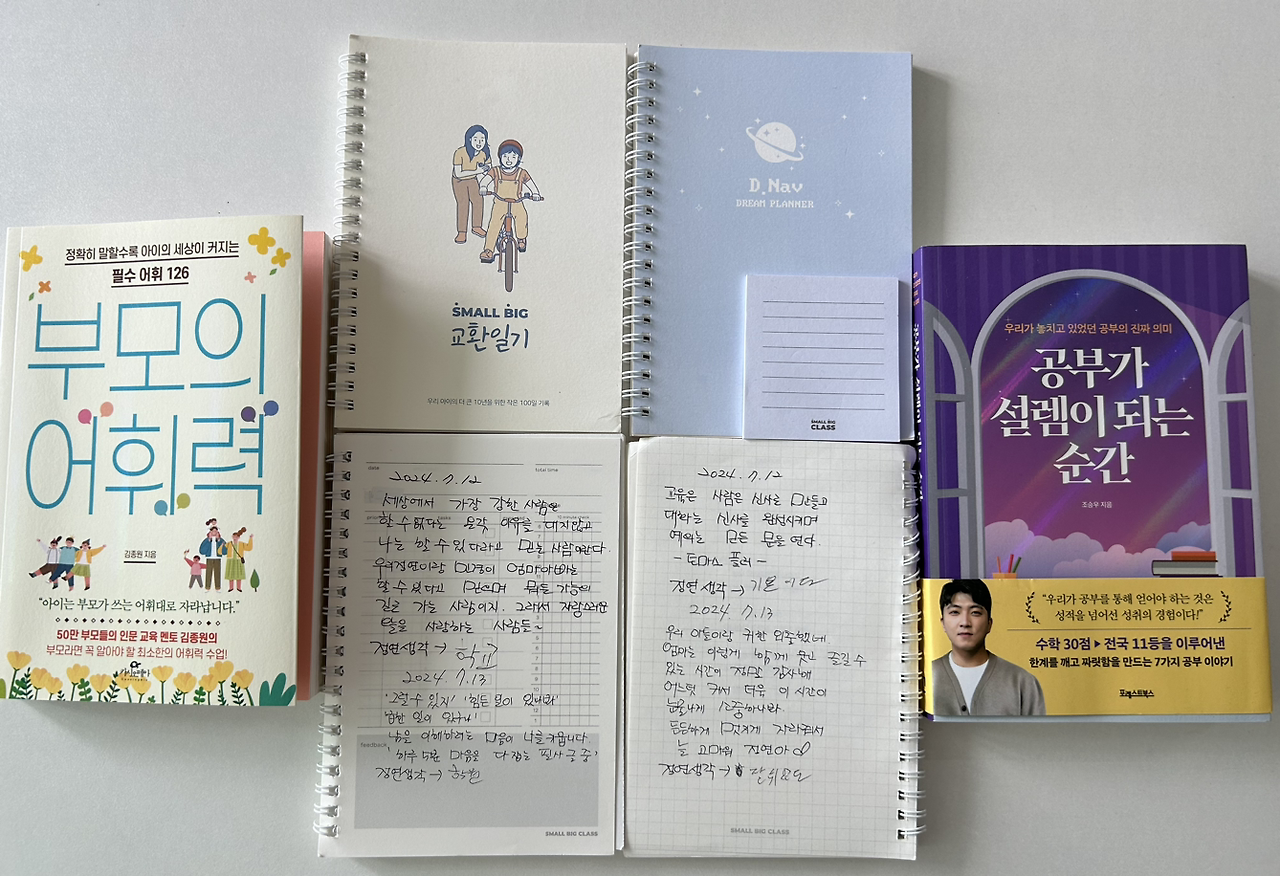 정확히 말할수록 아이의 세상이 커지는
필수 어휘 126
부모의
어휘력
김종원 지음
“아이는 부모가 쓰는 어휘대로 자라납니다.”
50만 부모들의 인문 교육 멘토 김종원의
부모라면 꼭 알아야 할 최소한의 어휘력 수업!
SMALL BIG
교환일기
우리 아이의 더 큰 10년을 위한 작은 100일 기록
D.Nav
DREAM PLANNER
SMALL BIG
CLASS
date
total time
2024. 7. 12
세상에서 가장 강한 사람은
할 수 없다는 생각 이유를 대지 않고
나는 할 수 있다라고 믿는 사람이란다.
우리 정연이랑 엄마아빠는
할 수 있다고 믿으며
길을 가는 사람이지. 그래서
들을 사랑하는 사람들~
정연생각 → 학교
2024. 7. 13
'그럴 수 있지' '힘든 일이 있나봐'
일이 있구나'
남을 이해하려는 마음이 나를 키웁니다
'하루 5분 마음을 다잡는 필사 공중'
feedback
정연생각 → 학원
SMALL BIG CLASS
2024. 7. 12
교육은 사람은 신사로 만들고
대화는 신사를 완성시키며
예의는 모든 문을 연다.
- 토마스 풀러 -
정연생각 →
2024. 7. 13
우리 아들이랑 귀한 일중했네
엄마는 이렇게 함께 웃고 즐길 수
있는 시간이 정말 감사해
어느덧 커서 더욱 이 시간이
소중하나봐.
든든하게 멋지게 자라줘서
늘 고마워 정연아♡
정연생각 →
SMALL BIG CLASS
우리가 놓치고 있었던 공부의 진짜 의미
공부가
설렘이 되는
순간
조승우 지음
“우리가 공부를 통해 얻어야 하는 것은
성적을 넘어선 성취의 경험이다!”
수학 30점 ▶ 전국 11등을 이루어낸
한계를 깨고 짜릿함을 만드는 7가지 공부 이야기
포레스트북스